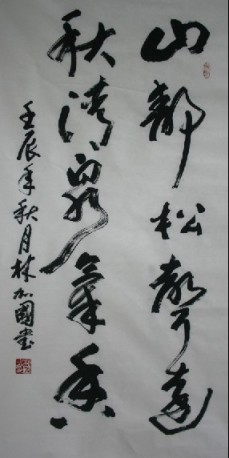 山静松声远
秋清泉气香
壬辰年秋月林加国书